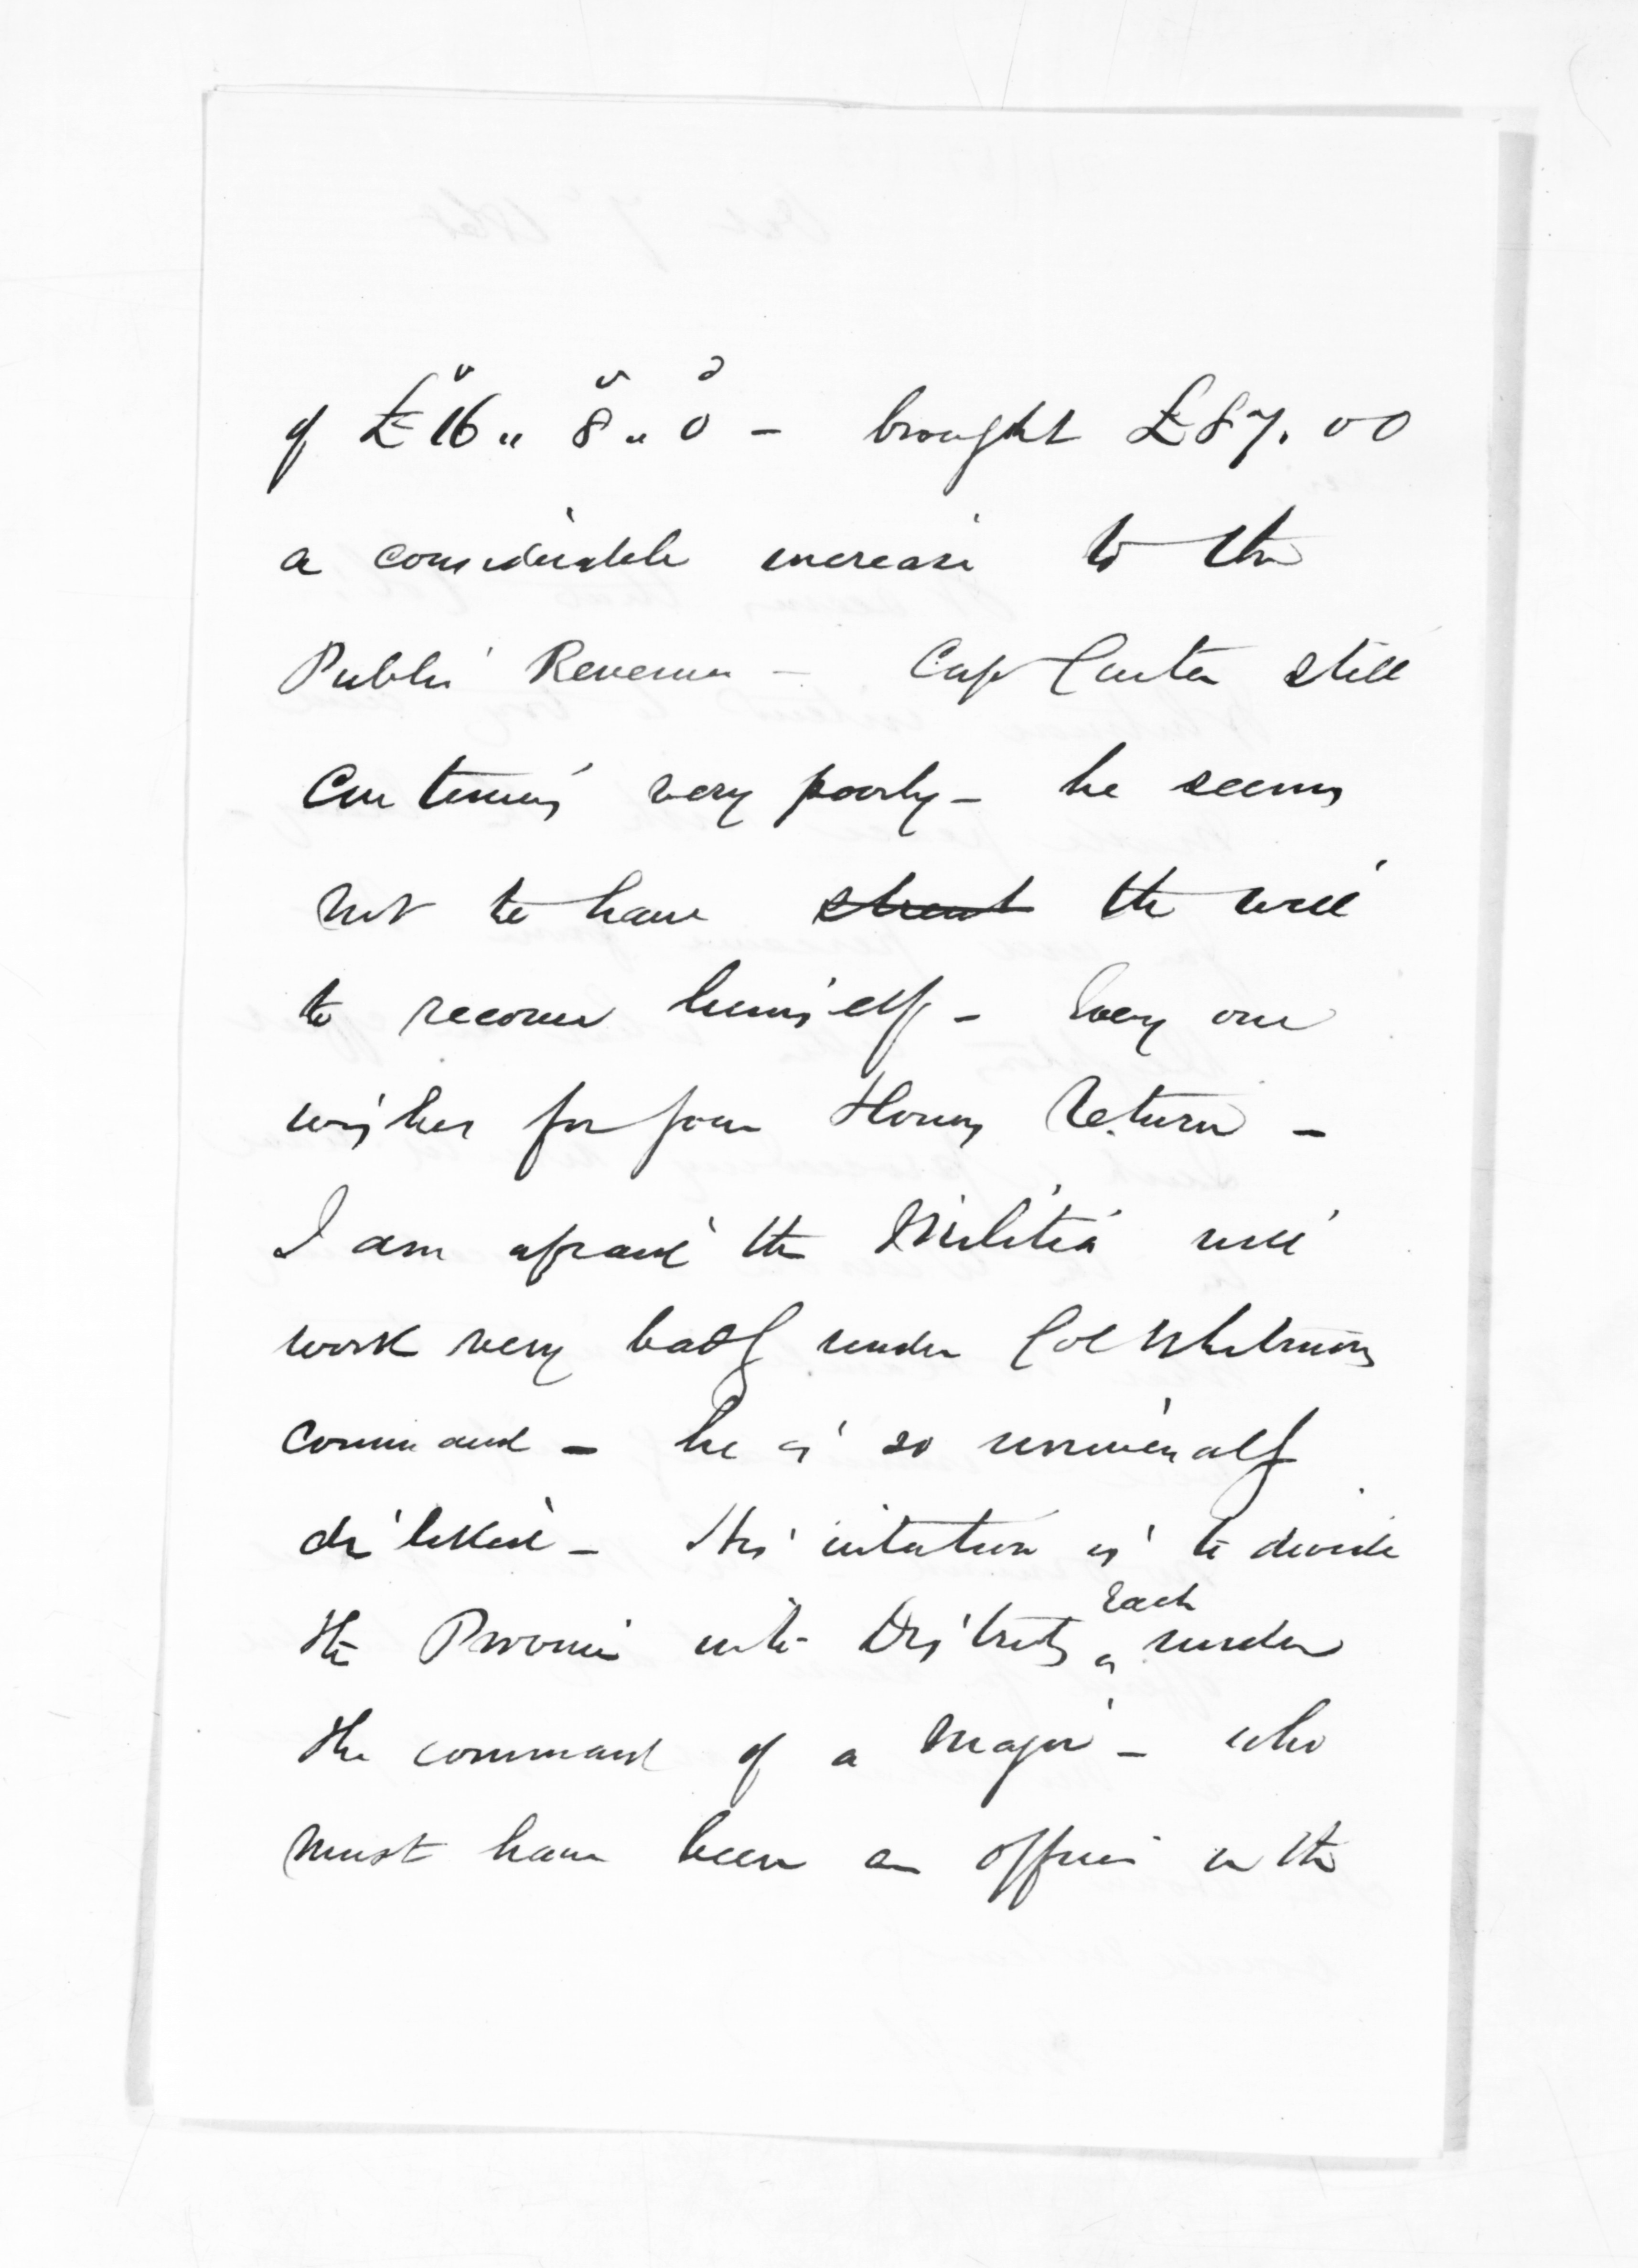 of £16 " 8 " 0 - brought £87.00
a considerable increase to the
Public Revenue - Cap Curtis still
Continues very poorly - he seems
not to have the will
to recover himself - Every one
wishes for your Honors Return -
I am afraid the Militia will
work very badly under Col Whitmores
command - he is so universally
disliked - His intention is to divide
the Province into Districts Each under
the command of a Major - who
must have been an officer in the